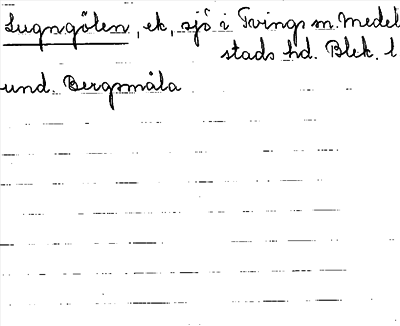 Lugngölen, ek, sjö i Tvings sn. Medel
stads hd. Blek. l
und. Bergsmåla